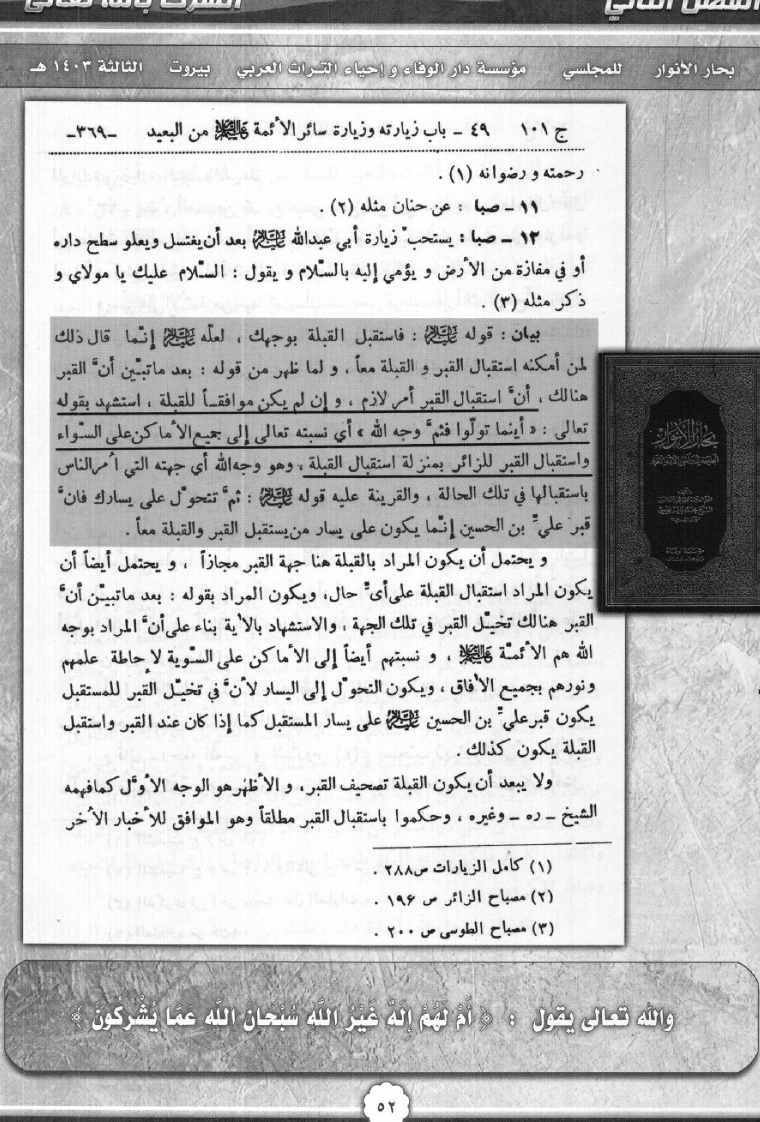 الفصل الثاني الشرك بالله تعالى
بحار الأنوار للمجلسي مؤسسة دار الوفاء و إحياء التراث العربي بيروت الثالثة ١٤٠٣ هـ
ج ١٠١ ٤٩ ـ باب زيارته وزيارة سائر الأئمة عليهم السلام من البعيد ـ٣٦٩ـ
رحمته و رضوانه (١) .
١١ ـ صبا : عن حنان مثله (٢) .
١٢ ـ صبا : يستحبّ زيارة أبي عبدالله عليه السلام بعد أن يغتسل ويعلو سطح داره
أو في مفازة من الأرض و يؤمي إليه بالسّلام و يقول : السّلام عليك يا مولاي و
ذكر مثله (٣) .
بيان : قوله عليه السلام : فاستقبل القبلة بوجهك ، لعلّه عليه السلام إنّما قال ذلك
لمن أمكنه استقبال القبر و القبلة معاً ، و لما ظهر من قوله : بعد ماتبيّن أنّ القبر
هنالك ، أنّ استقبال القبر أمر لازم ، و إن لم يكن موافقاً للقبلة ، استشهد بقوله
تعالى : « أينما تولّوا فثمّ وجه الله » أي نسبته تعالى إلى جميع الأماكن على السّواء
واستقبال القبر للزائر بمنزلة استقبال القبلة ، وهو وجه الله أي جهته التي أمر الناس
باستقبالها في تلك الحالة ، والقرينة عليه قوله عليه السلام : ثمّ تتحوّل على يسارك فانّ
قبر عليّ بن الحسين إنّما يكون على يسار من يستقبل القبر والقبلة معاً .
و يحتمل أن يكون المراد بالقبلة هنا جهة القبر مجازاً ، و يحتمل أيضاً أن
يكون المراد استقبال القبلة على أىّ حال، ويكون المراد بقوله : بعد ماتبيّن أنّ
القبر هنالك تخيّل القبر في تلك الجهة ، والاستشهاد بالأية بناء على أنّ المراد بوجه
الله هم الأئمّة عليهم السلام ، و نسبتهم أيضاً إلى الأماكن على السّوية لاحاطة علمهم
ونورهم بجميع الأفاق ، ويكون التحوّل إلى اليسار لأنّ في تخيّل القبر للمستقبل
يكون قبر عليّ بن الحسين عليه السلام على يسار المستقبل كما إذا كان عند القبر واستقبل
القبلة يكون كذلك .
ولا يبعد أن يكون القبلة تصحيف القبر، و الأظهر هو الوجه الأوّل كمافهمه
الشيخ ـ ره ـ وغيره ، وحكموا باستقبال القبر مطلقاً وهو الموافق للأخبار الأخر
(١) كامل الزيارات ص ٢٨٨ .
(٢) مصباح الزائر ص ١٩٦ .
(٣) مصباح الطوسى ص ٢٠٠ .
بحار الأنوار
والله تعالى يقول : ﴿ أَمْ لَهُمْ إِلَهٌ غَيْرُ اللَّهِ سُبْحَانَ اللَّهِ عَمَّا يُشْرِكُونَ ﴾
٥٢